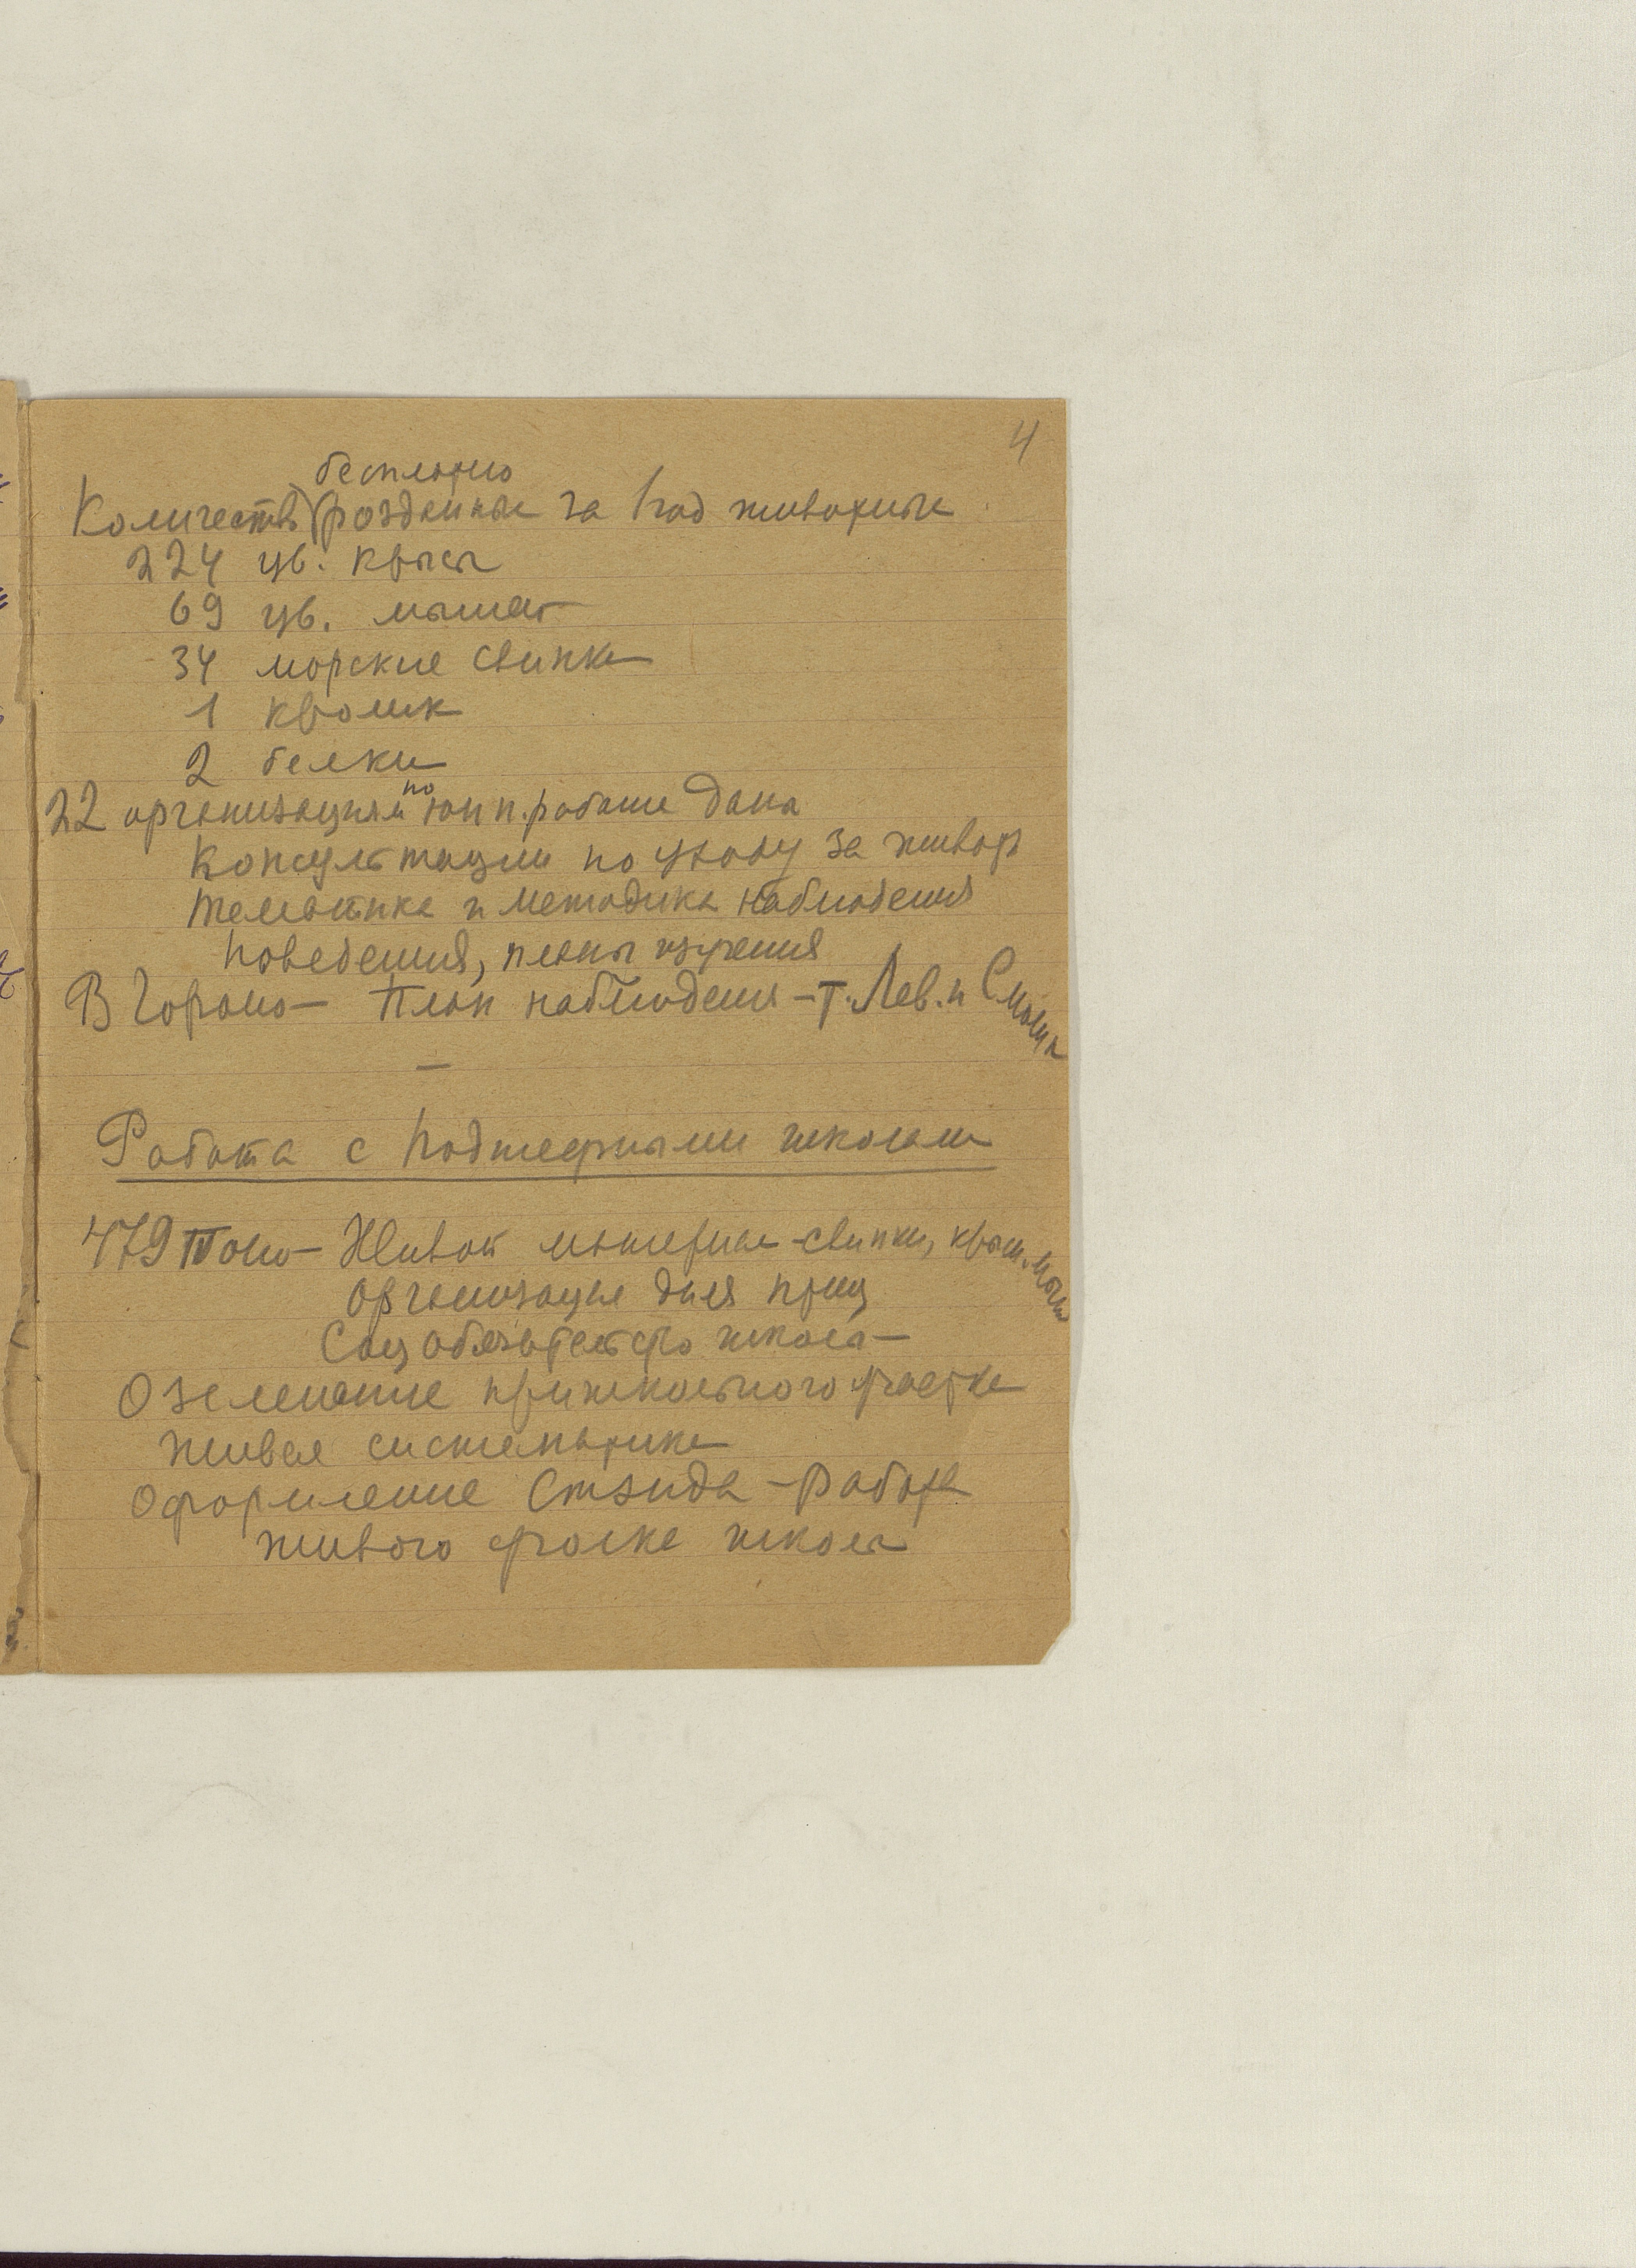 4
бесплатно
Количество розданные за 1 год животные
224 цв. крысы
69 цв. мышат
34 морские свинки
1 кролик
2 белки
22 организациям по юнн. работе дана
консультации по уходу за животн
тематика и методика наблюдения
поведения, планы изучения
В Гороно — План наблюдения — т. Лев. и
Работа с подшефными школами
479 — Живой материал - свинки, крыс. мыши
Организация дня птиц
Соц обязательство школа —
Озеленение пришкольного участка
живая систематика
Оформление Стэнда — работа
живого уголка школы